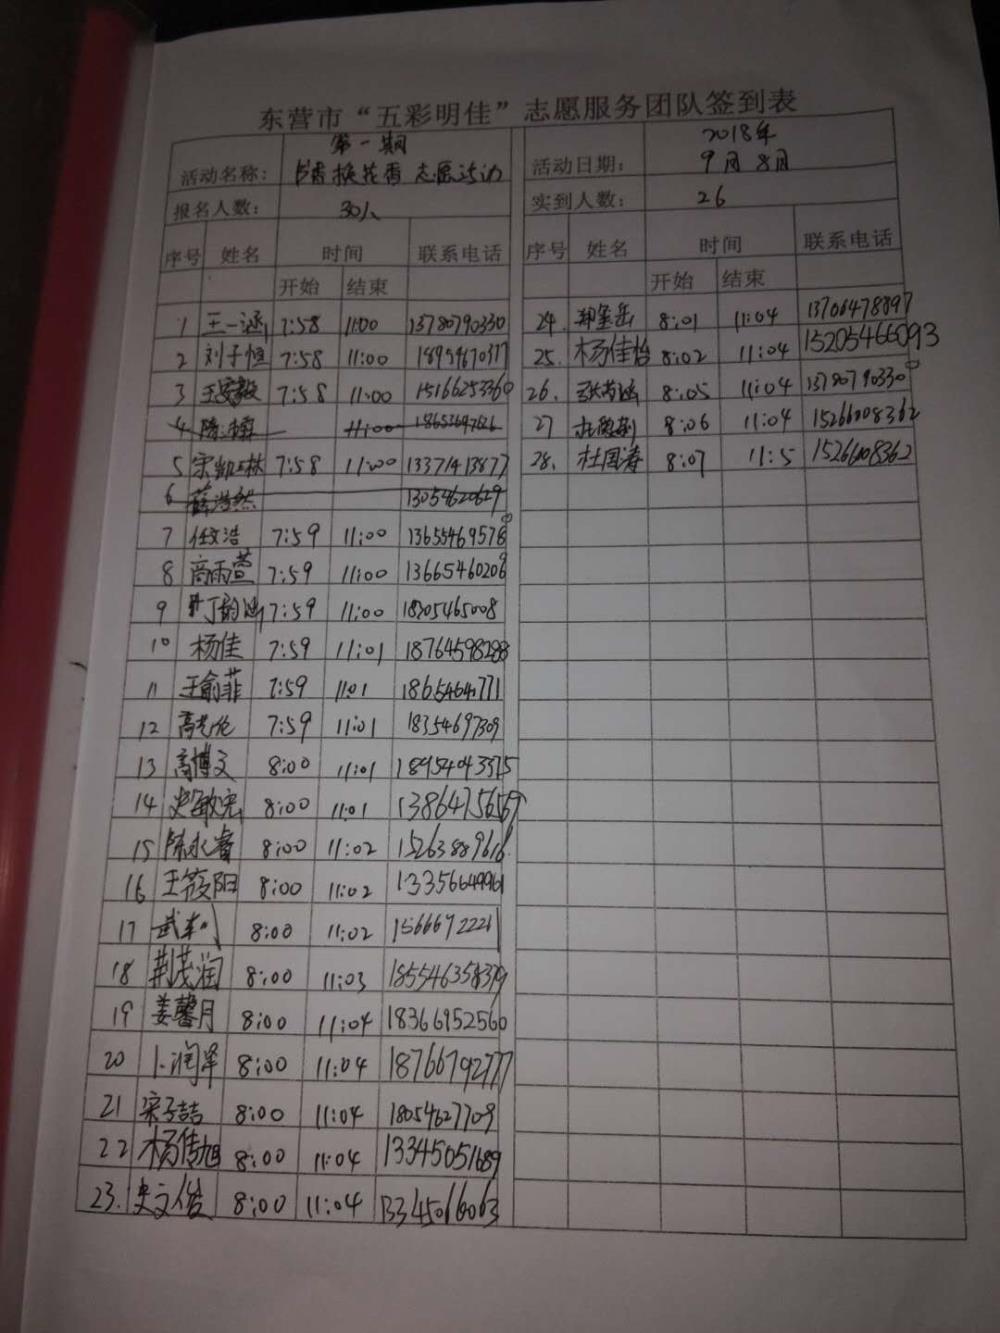 东营市“五彩明佳”志愿服务团队签到表
活动名称： 第一期
书香换花香 志愿活动
活动日期： 2018年
9月8日
报名人数： 30人
实到人数： 26
序号 姓名 时间 联系电话
开始 结束
1 王一涵 7:58 11:00 13780790330
2 刘子恒 7:58 11:00
3 7:58 11:00 15166253360
4 11:00
5 宋凯林 7:58 11:00 13371413877
6 薛浩然 13054620629
7 任文浩 7:59 11:00
8 商雨萱 7:59 11:00
9 丁韵涵 7:59 11:00 18305465008
10 杨佳 7:59 11:01 18764598288
11 王俞菲 7:59 11:01
12 7:59 11:01 18354697309
13 高博文 8:00 11:01
14 史敏宏 8:00 11:01
15 陈永睿 8:00 11:02 15263889616
16 王筱阳 8:00 11:02 13356649961
17 8:00 11:02 15666922221
18 荆茂润 8:00 11:03 18554635839
19 姜馨月 8:00 11:04 18366952560
20 卜润泽 8:00 11:04 18766792777
21 宋子喆 8:00 11:04 18054627709
22 杨传旭 8:00 11:04 13345051689
23. 史文俊 8:00 11:04 13345066063
序号 姓名 时间 联系电话
开始 结束
24. 8:01 11:04 13706478897
25. 杨佳怡 8:02 11:04 15205466093
26. 8:05 11:04 13780790330
27 8:06 11:04 15266008362
28. 杜国涛 8:07 11:5